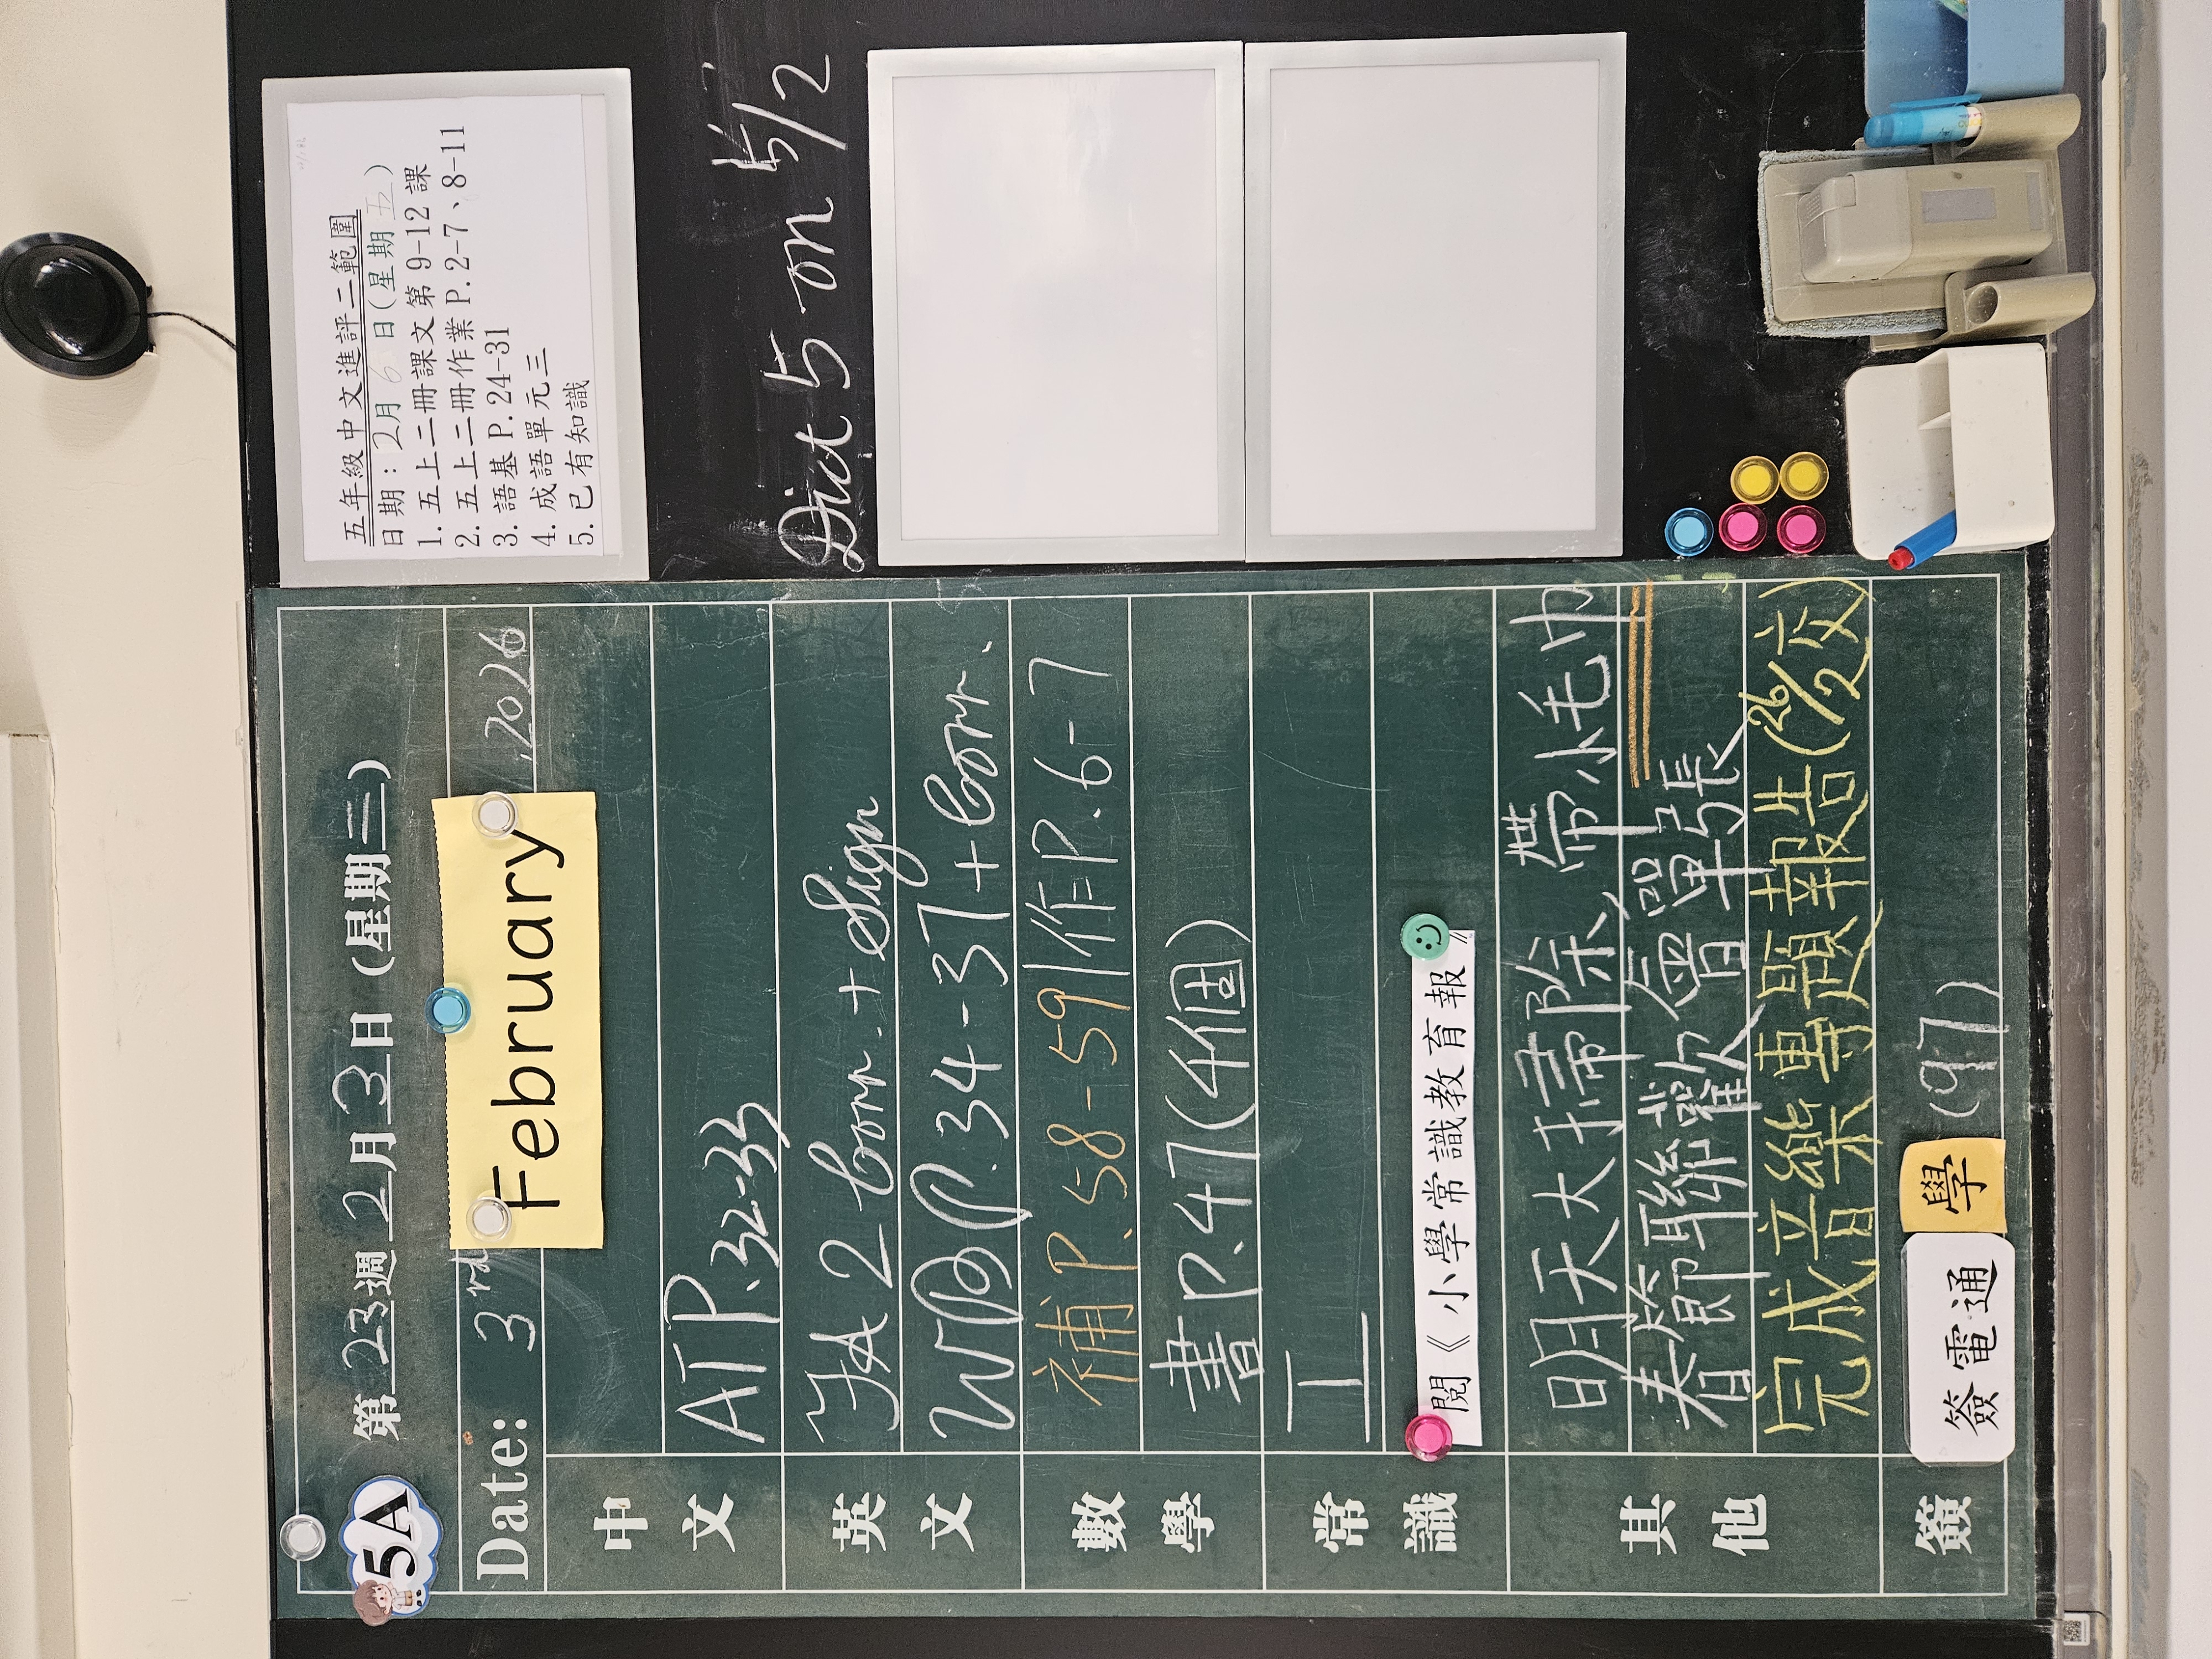 5A
第23週 2月3日(星期二)
Date: 3rd February, 2026
中文
AT P.32-33
英文
FA 2 Corr. + Sign
WB P.34-37 + Corr.
數學
補 P.58-59 | 作 P.6-7
書 P.47(4個)
常識
工
閱《小學常識教育報》
其他
明天大掃除,帶小毛巾
春節聯歡會單張
完成音樂專題報告(26/2交)
簽
簽電通 學 (97)
五年級中文進評二範圍
日期:2月6日(星期五)
1.五上二冊課文第9-12課
2.五上二冊作業P.2-7、8-11
3.語基P.24-31
4.成語單元三
5.已有知識
Dict 5 on 5/2